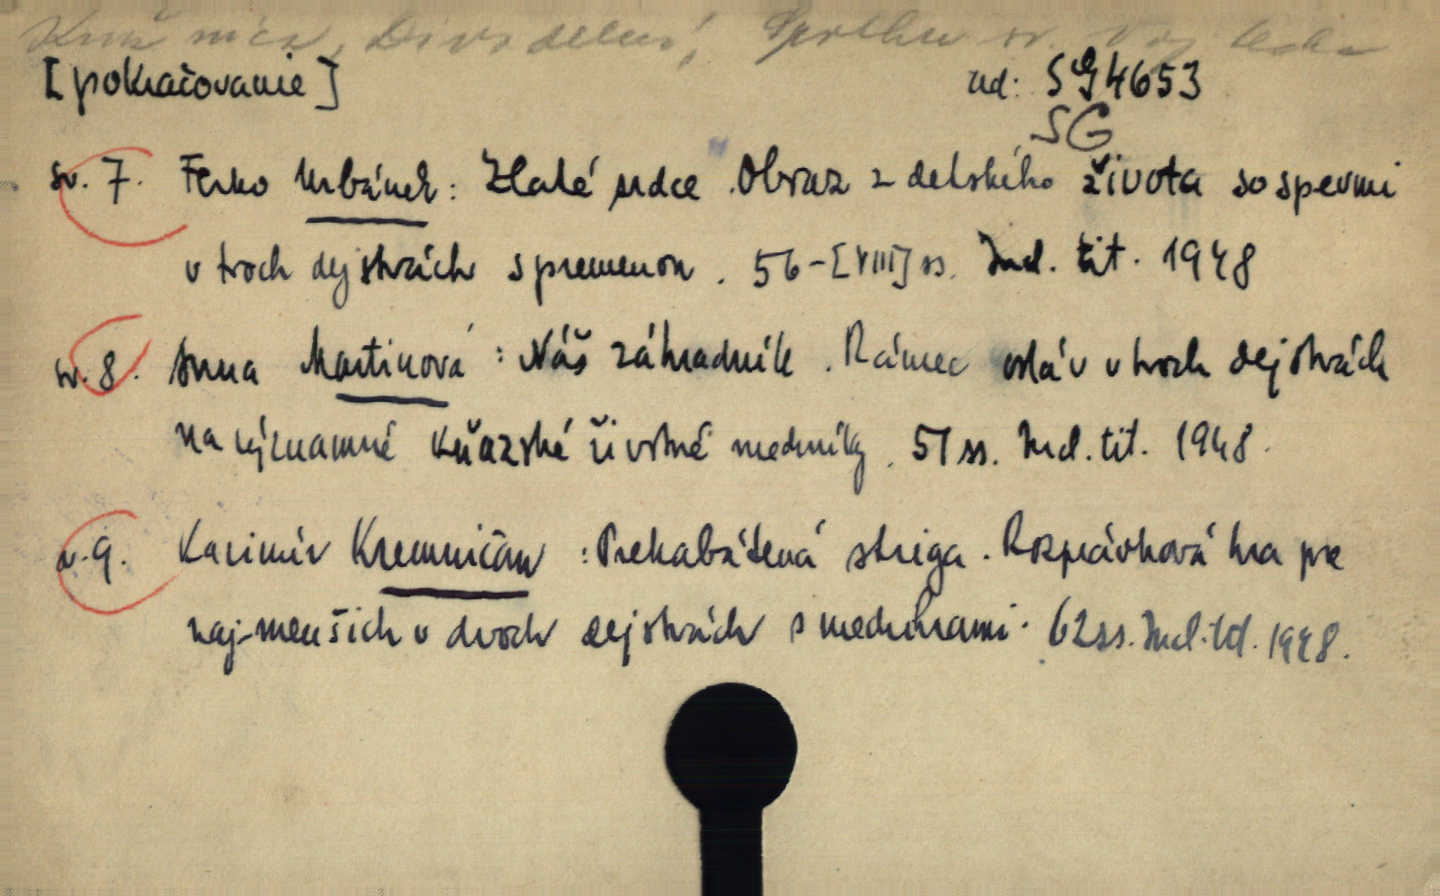 Knižnica, Divadelná, Spolku sv. Vojtecha
[pokračovanie] ad: SG4653
SG
sv. 7. Ferko Urbánek: Zlaté srdce. Obraz z detského života so spevmi
v troch dejstvách s premenou. 56-[VIII] ss. Ind. tit. 1948
sv. 8. Anna Martinová: Náš záhradník. Rámec osláv v troch dejstvách
na významné kňazské životné medzníky. 51 ss. Ind. tit. 1948.
sv. 9. Kazimír Kremničan: Prekabátená striga. Rozprávková hra pre
naj-menších v dvoch dejstvách s medzihrami. 62 ss. Ind. tit. 1948.